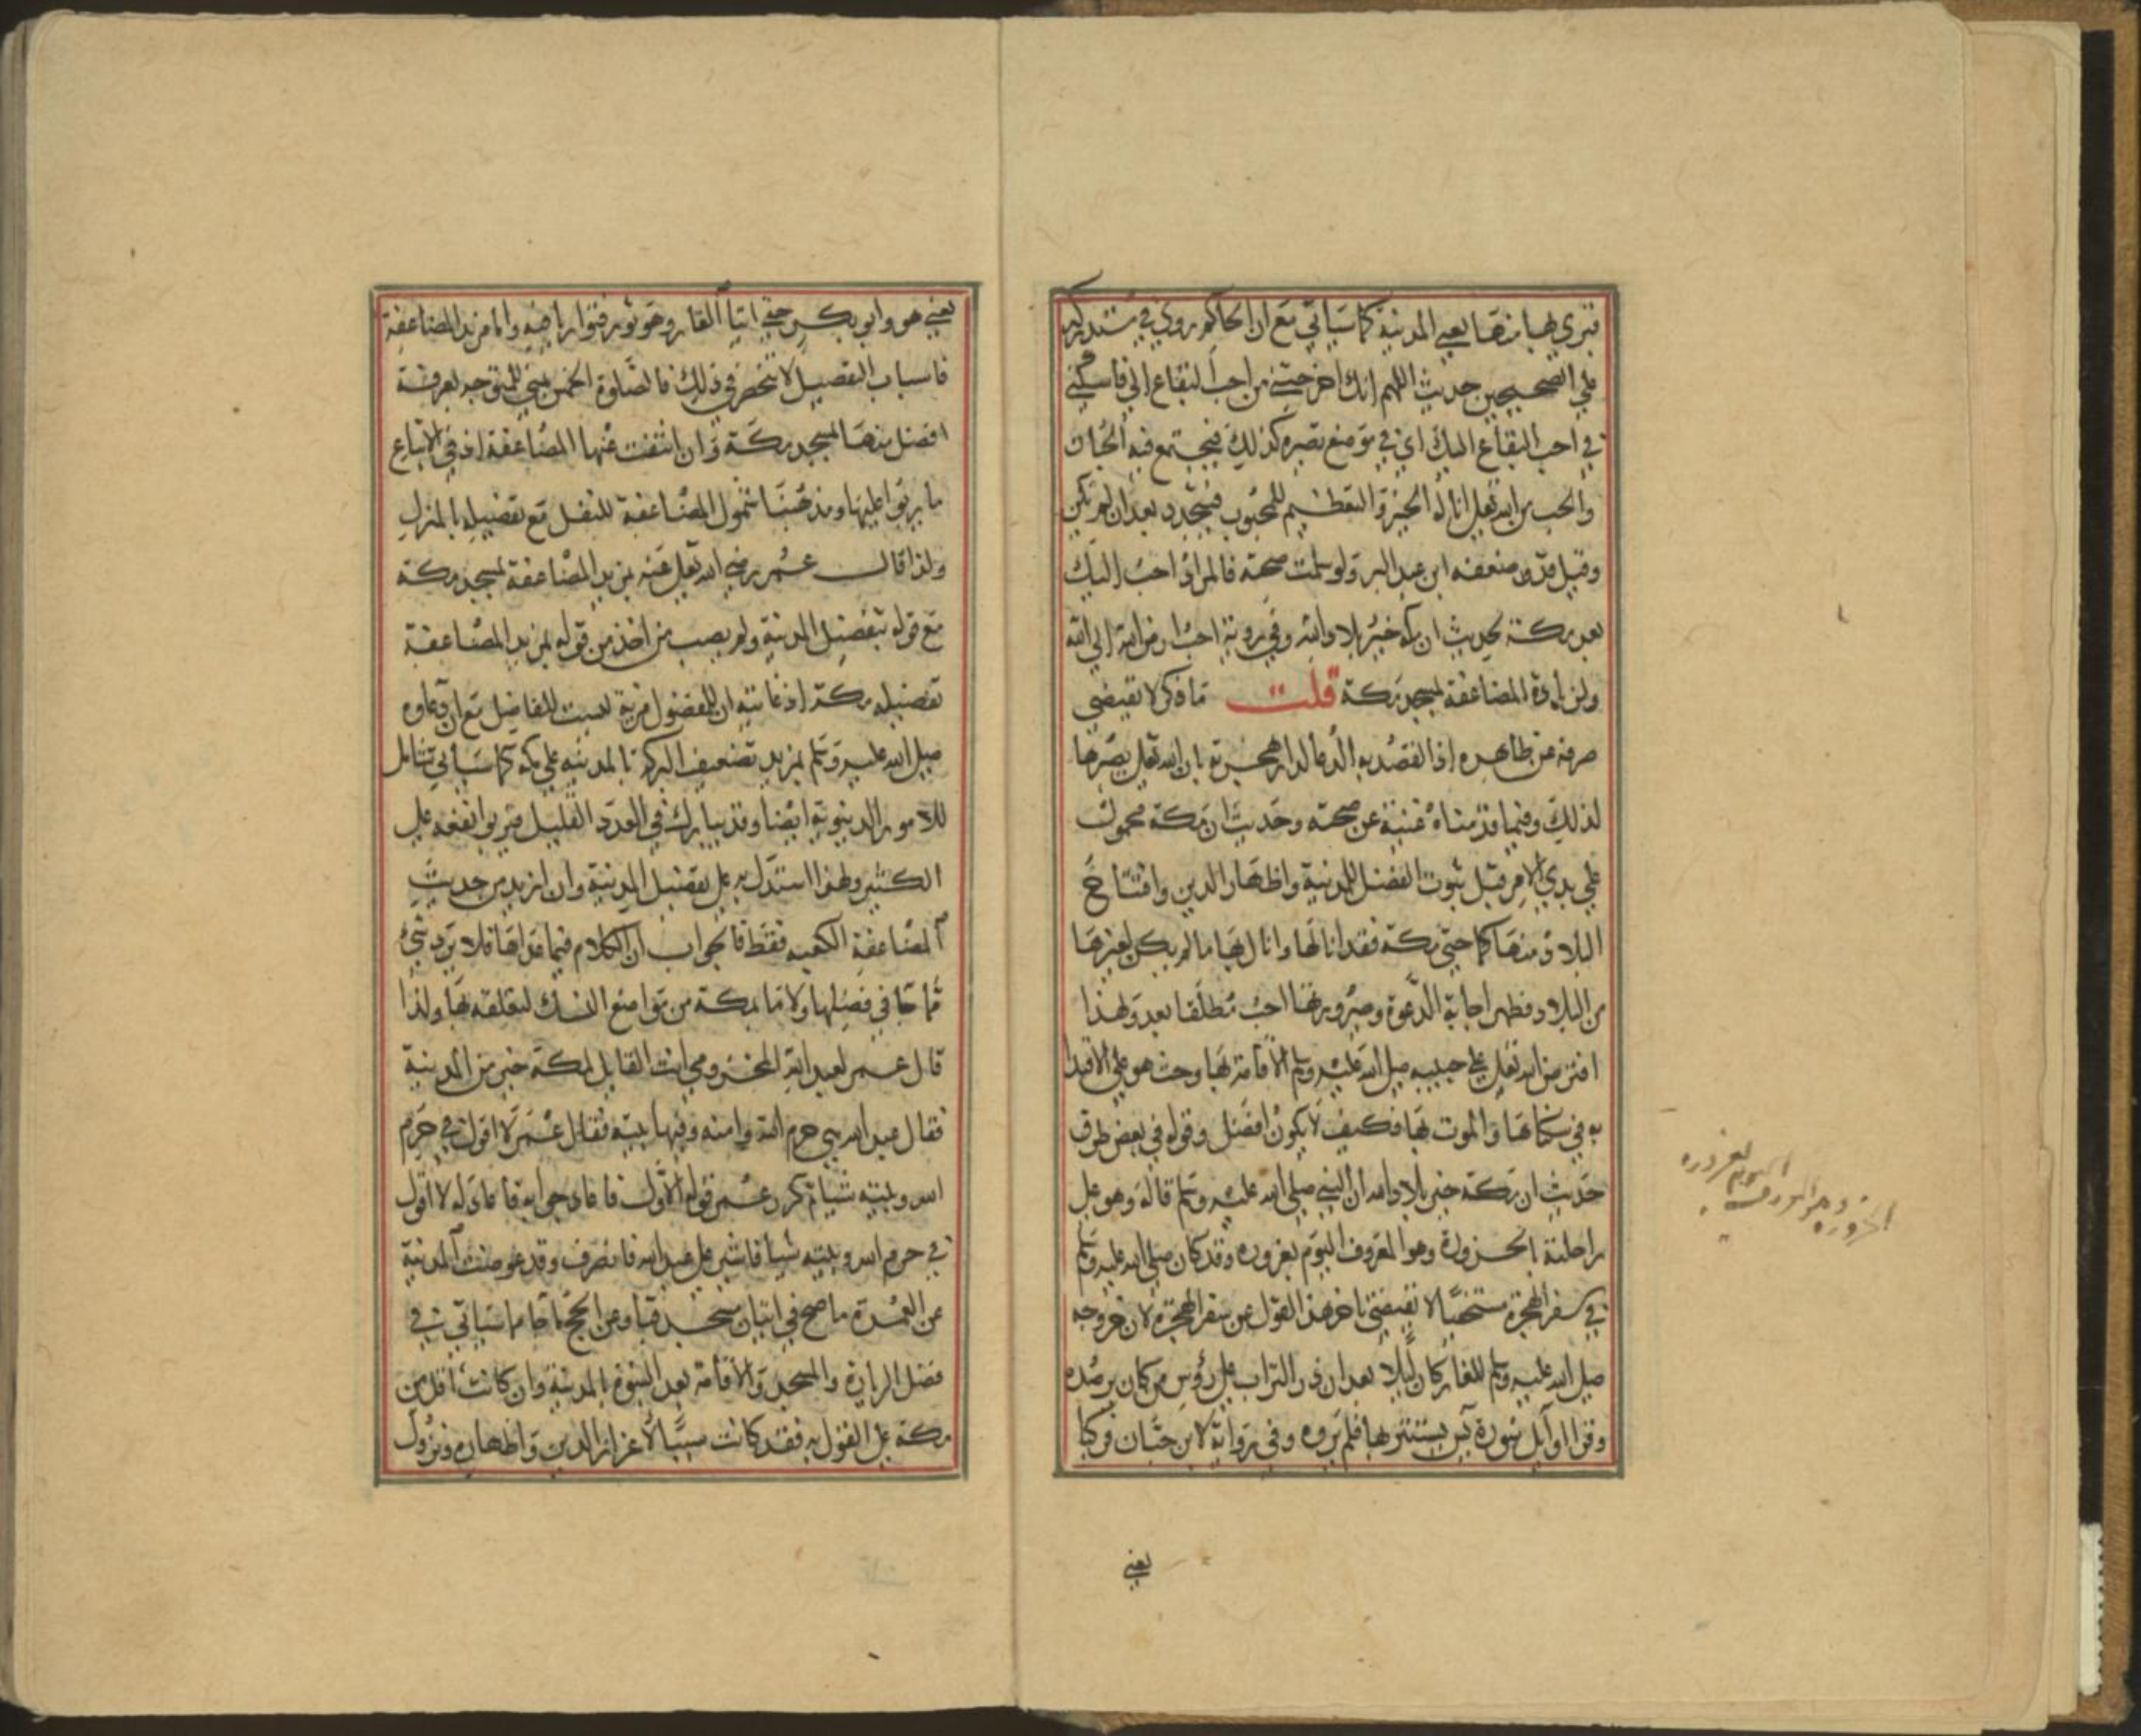 قبري بها منها يعني المدينة كما سياتي مع ان الحاكم روي في مستدركه
علي الصحيحين حديث اللهم انك اخرجتني من احب البقاع الي فاسكني
في احب البقاع اليك اي في موضع تصيره كذلك فيجتمع فيه الحبان
والحب من الله تعلي انالة الخير والتعظيم للمحبوب فيتجدد بعد ان لم تكن
وقيل قد ضعفه ابن عبد البر ولو سلمت صحته فالمراد احب اليك
بعد مكة لحديث ان مكة خير بلاد الله وفي رواية احب ارض الله الي الله
ولزيادة المضاعفة لمسجد مكة قلت ما ذكر لا يقتضي
صرفه عن ظاهره اذ القصد به الدعا لدار هجرته بان الله تعلي يصيرها
لذلك وفيما قدمناه غنية عن صحته وحديث ان مكة محمول
علي بدي الامر قبل ثبوت الفضل للمدينة واظهار الدين وافتتاح
البلاد منها كما حتي مكة فقد انالها وانال بها ما لم يكن لغيرها
من البلاد فظهر اجابة الدعوة وصيرورتها احب مطلقا بعد ولهذا
افترض الله تعلي علي حبيبه صلي الله عليه وسلم الاقامة بها وحث هو علي الاقتدا
به في سكناها والموت بها فكيف لا يكون افضل وقوله في بعض طرق
حديث ان مكة خير بلاد الله ان النبي صلي الله عليه وسلم قاله وهو علي
راحلته الحزورة وهو المعروف اليوم بعزوره وقد كان صلي الله عليه وسلم
في سفر الهجرة مستخفيا لا يقتضي تاخر هذا القول عن سفر الهجرة لان خروجه
صلي الله عليه وسلم للغار كان ليلا بعد ان ذر التراب علي رؤس من كان يرصده
وقرا اوايل سورة يس يستتر بها فلم يروه وفي رواية لابن حبان فركبا
يعني
الحزوره وهو المعروف اليوم بعزوره
يعني هو وابو بكر حتي اتيا الغار وهو ثور فتواريا فيه واما مزيد المضاعفة
فاسباب التفضيل لا تنحصر في ذلك فالصلوة الخمس بمني للمتوجه لعرفة
افضل منها بمسجد مكة وان انتفت عنها المضاعفة اذ في الاتباع
ما يربو عليها ومذهبنا شمول المضاعفة للنفل مع تفضيله بالمنزل
ولذا قال عمر رضي الله تعلي عنه بمزيد المضاعفة لمسجد مكة
مع قوله بتفضيل المدينة ولم يصب من اخذ من قوله بمزيد المضاعفة
تفضيله مكة اذ غايته ان للمفضول مزية ليست للفاضل مع ان دعاوه
صلي الله عليه وسلم بمزيد تضعيف البركة بالمدينه علي مكه كما سياتي شامل
للامور الدينوية ايضا وقد يبارك في العدد القليل فيربو نفعه علي
الكثير ولهذا استدل به علي تفضيل المدينة وان اريد من حديث
المضاعفة الكعبه فقط فالجواب ان الكلام فيما عداها فلا يرد شيء
مما جا في فضلها ولا ما بمكة من مواضع النسك لتعلقه بها ولذا
قال عمر لعبد الله المخزومي انت القايل لمكة خير من المدينة
فقال عبد الله هي حرم الله وامنه وفيها بيته فقال عمر لا اقول في حرم
الله وبيته شيا ثم كرر عمر قوله الاول فاعاد جوابه فاعاد له لا اقول
في حرم الله وبيته شيا فاشير علي عبد الله فانصرف وقد عوضت المدينة
عن العمرة ما صح في اتيان مسجد قبا وعن الحج ما جا مما سياتي في
فضل الزيارة والمسجد والاقامة بعد النبوة بالمدينة وان كانت اقل من
مكة علي القول به فقد كانت سببا لاعزاز الدين واظهاره ونزول